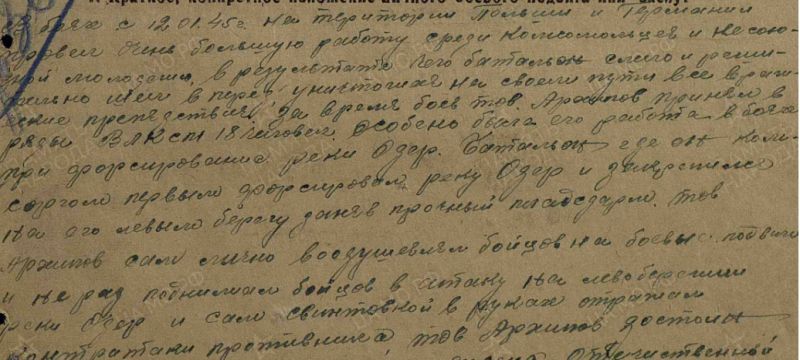 1. Краткое, конкретное изложение личного боевого подвига или заслуг.
в боях с 12.01.45г. на територии Польши и Германии
провел очень большую работу среди комсомольцев и несою-
зной молодежи, в результате чего батальон смело и реши-
тельно шел в перед уничтожая на своем пути все враже-
ские препядствия, за время боев тов. Архипов принял в
ряды ВЛКСМ 18 человек, особено была его работа в боях
при форсирование реки Одер. Батальон где он ком-
соргом первым форсировал реку Одер и закрепился
на его левым берегу заняв прочный плацдарм. тов
Архипов сам лично воодушевлял бойцов на боевые подвиги
и не раз поднимал бойцов в атаку на левобережии
реки Одер и сам свинтовкой в руках отражал
контратаки противника тов Архипов достоин
Отечественной